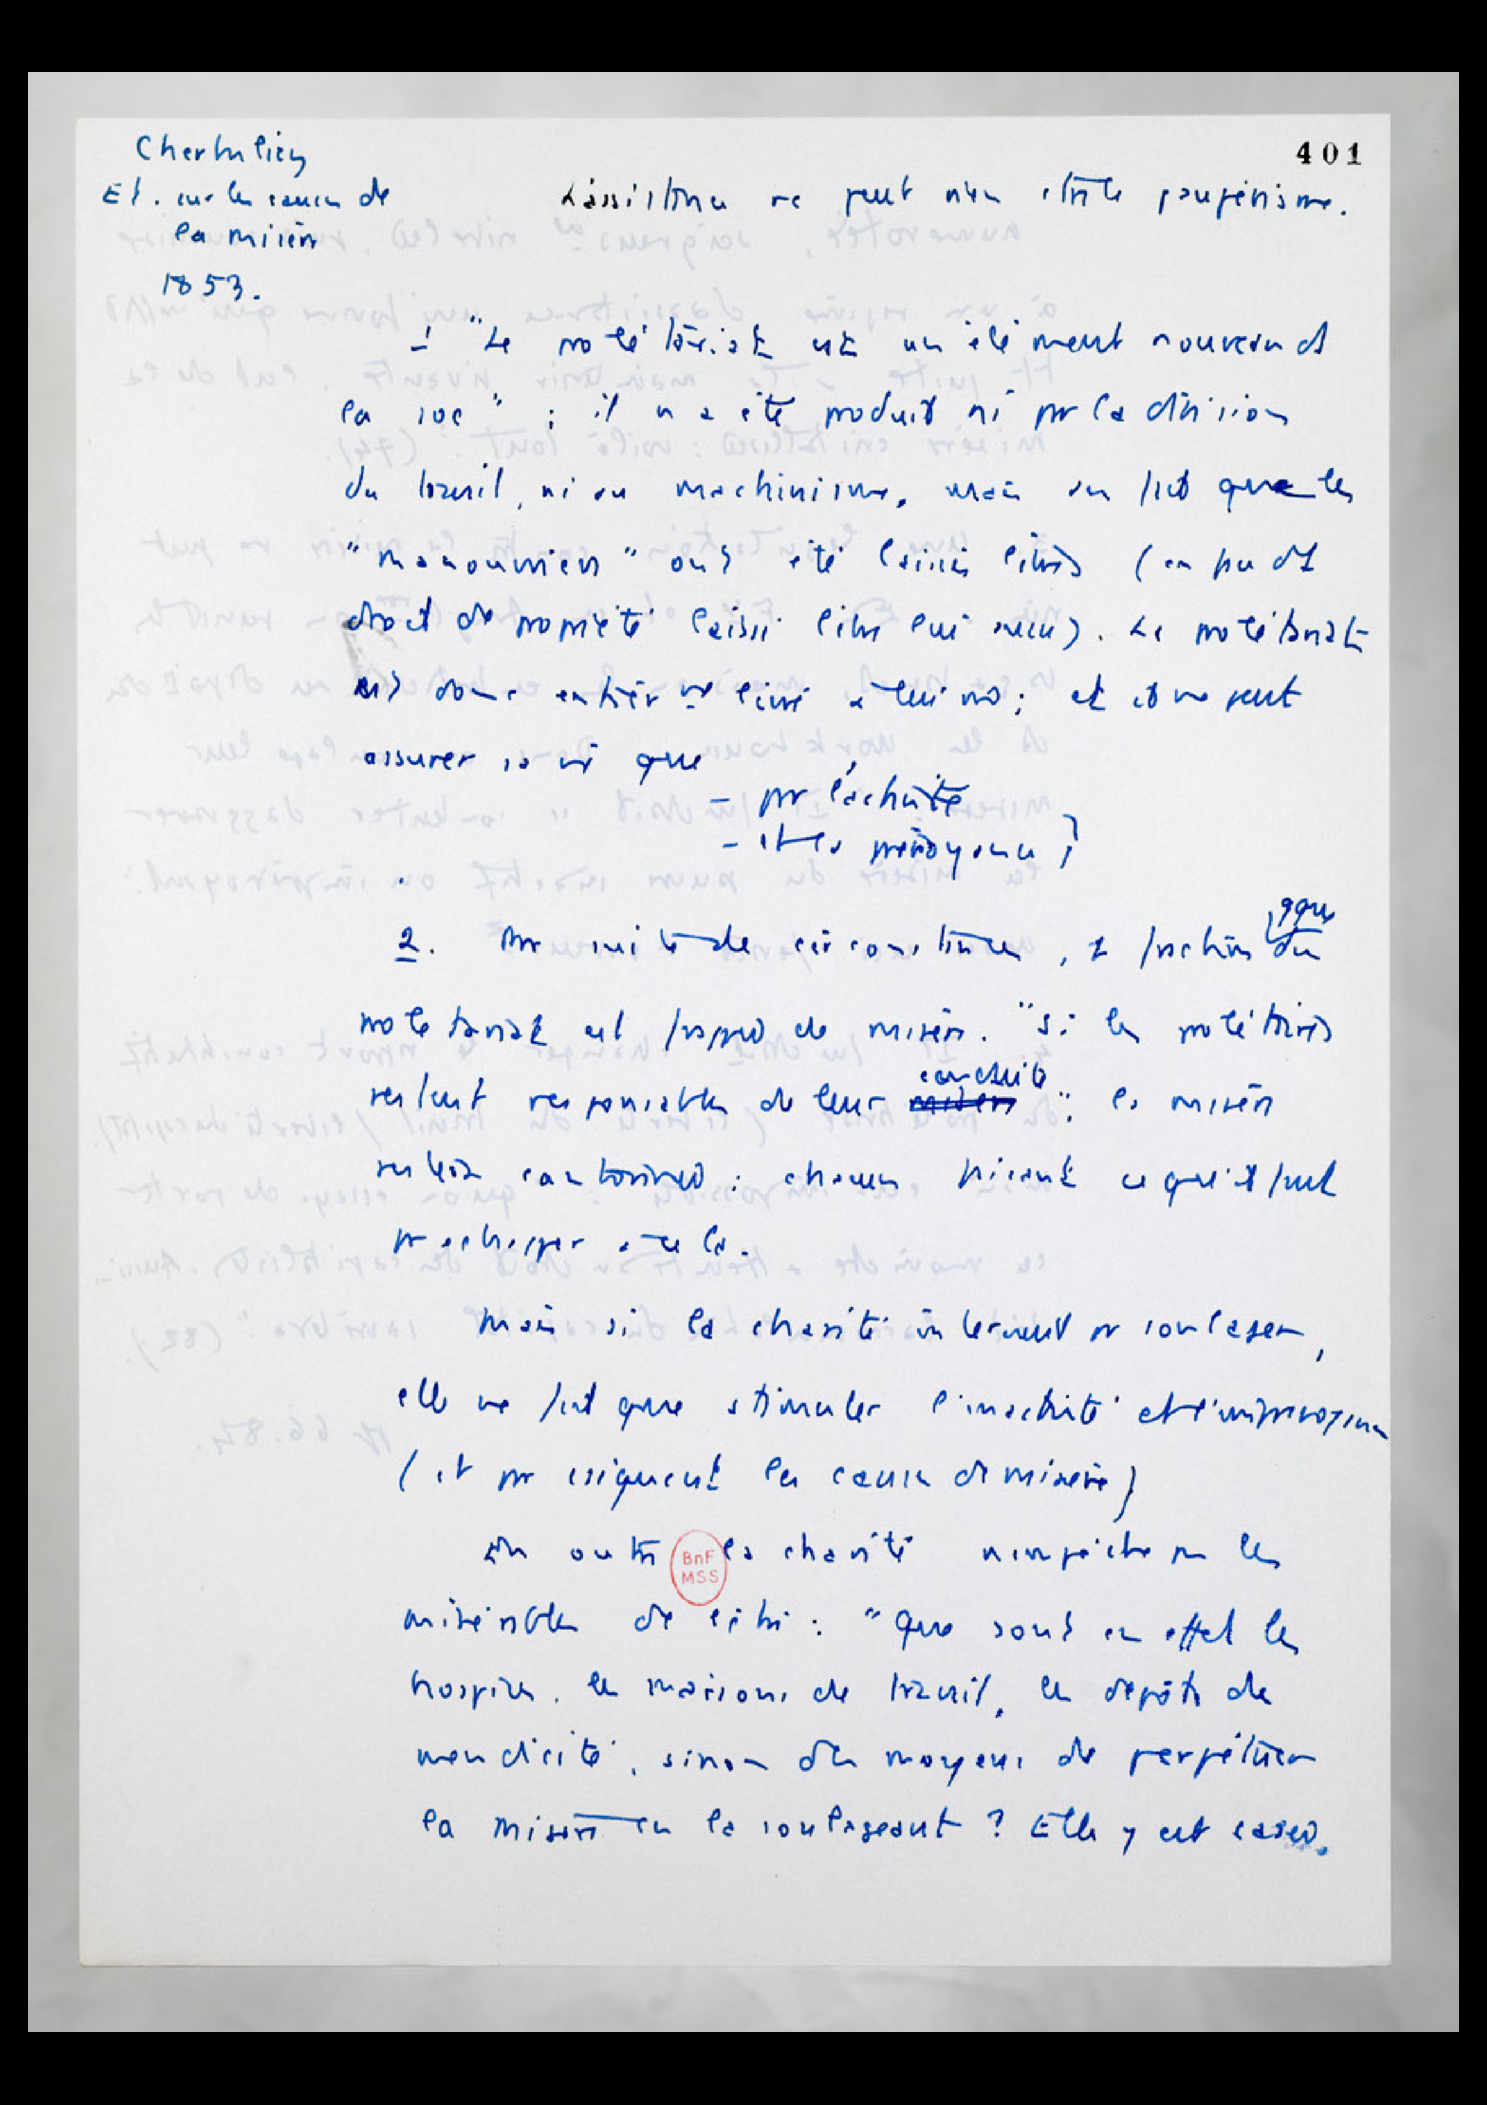 Cherbuliez
401
Et. sur les causes de
la misère
1853.
L'assistance ne peut rien ctre le paupérisme.
1 "Le prolétariat est un élément nouveau ds
la soc" ; il n'a été produit ni pr la division
du travail, ni au machinisme, mais au fait que les
"manouvriers" ont été laissés libres (un peu ds
droit de propriété laissé libre lui aussi). Le prolétariat
est donc entièrt livré à lui-m; et il ne peut
assurer sa vie que
- pr l'activité
- et la prévoyance
2. Par suite de circonstances, 1 fraction qque du
prolétariat est frappée de misère. "Si les prolétaires
restent responsables de leur conduite": la misère
restera cantonnée: chacun faisant ce qu'il peut
pr échapper à cela.
Mais si la charité intervient pr soulager,
elle ne fait que stimuler l'inactivité et l'imprévoyance
(et pr csiquent les causes de misère)
En outre la charité n'empêche pas les
BnF
MSS
misérables de l'être: "Que sont en effet les
hospices, les maisons de travail, les dépôts de
mendicité, sinon des moyens de perpétuer
la misère en la soulageant? Elle y est casée,